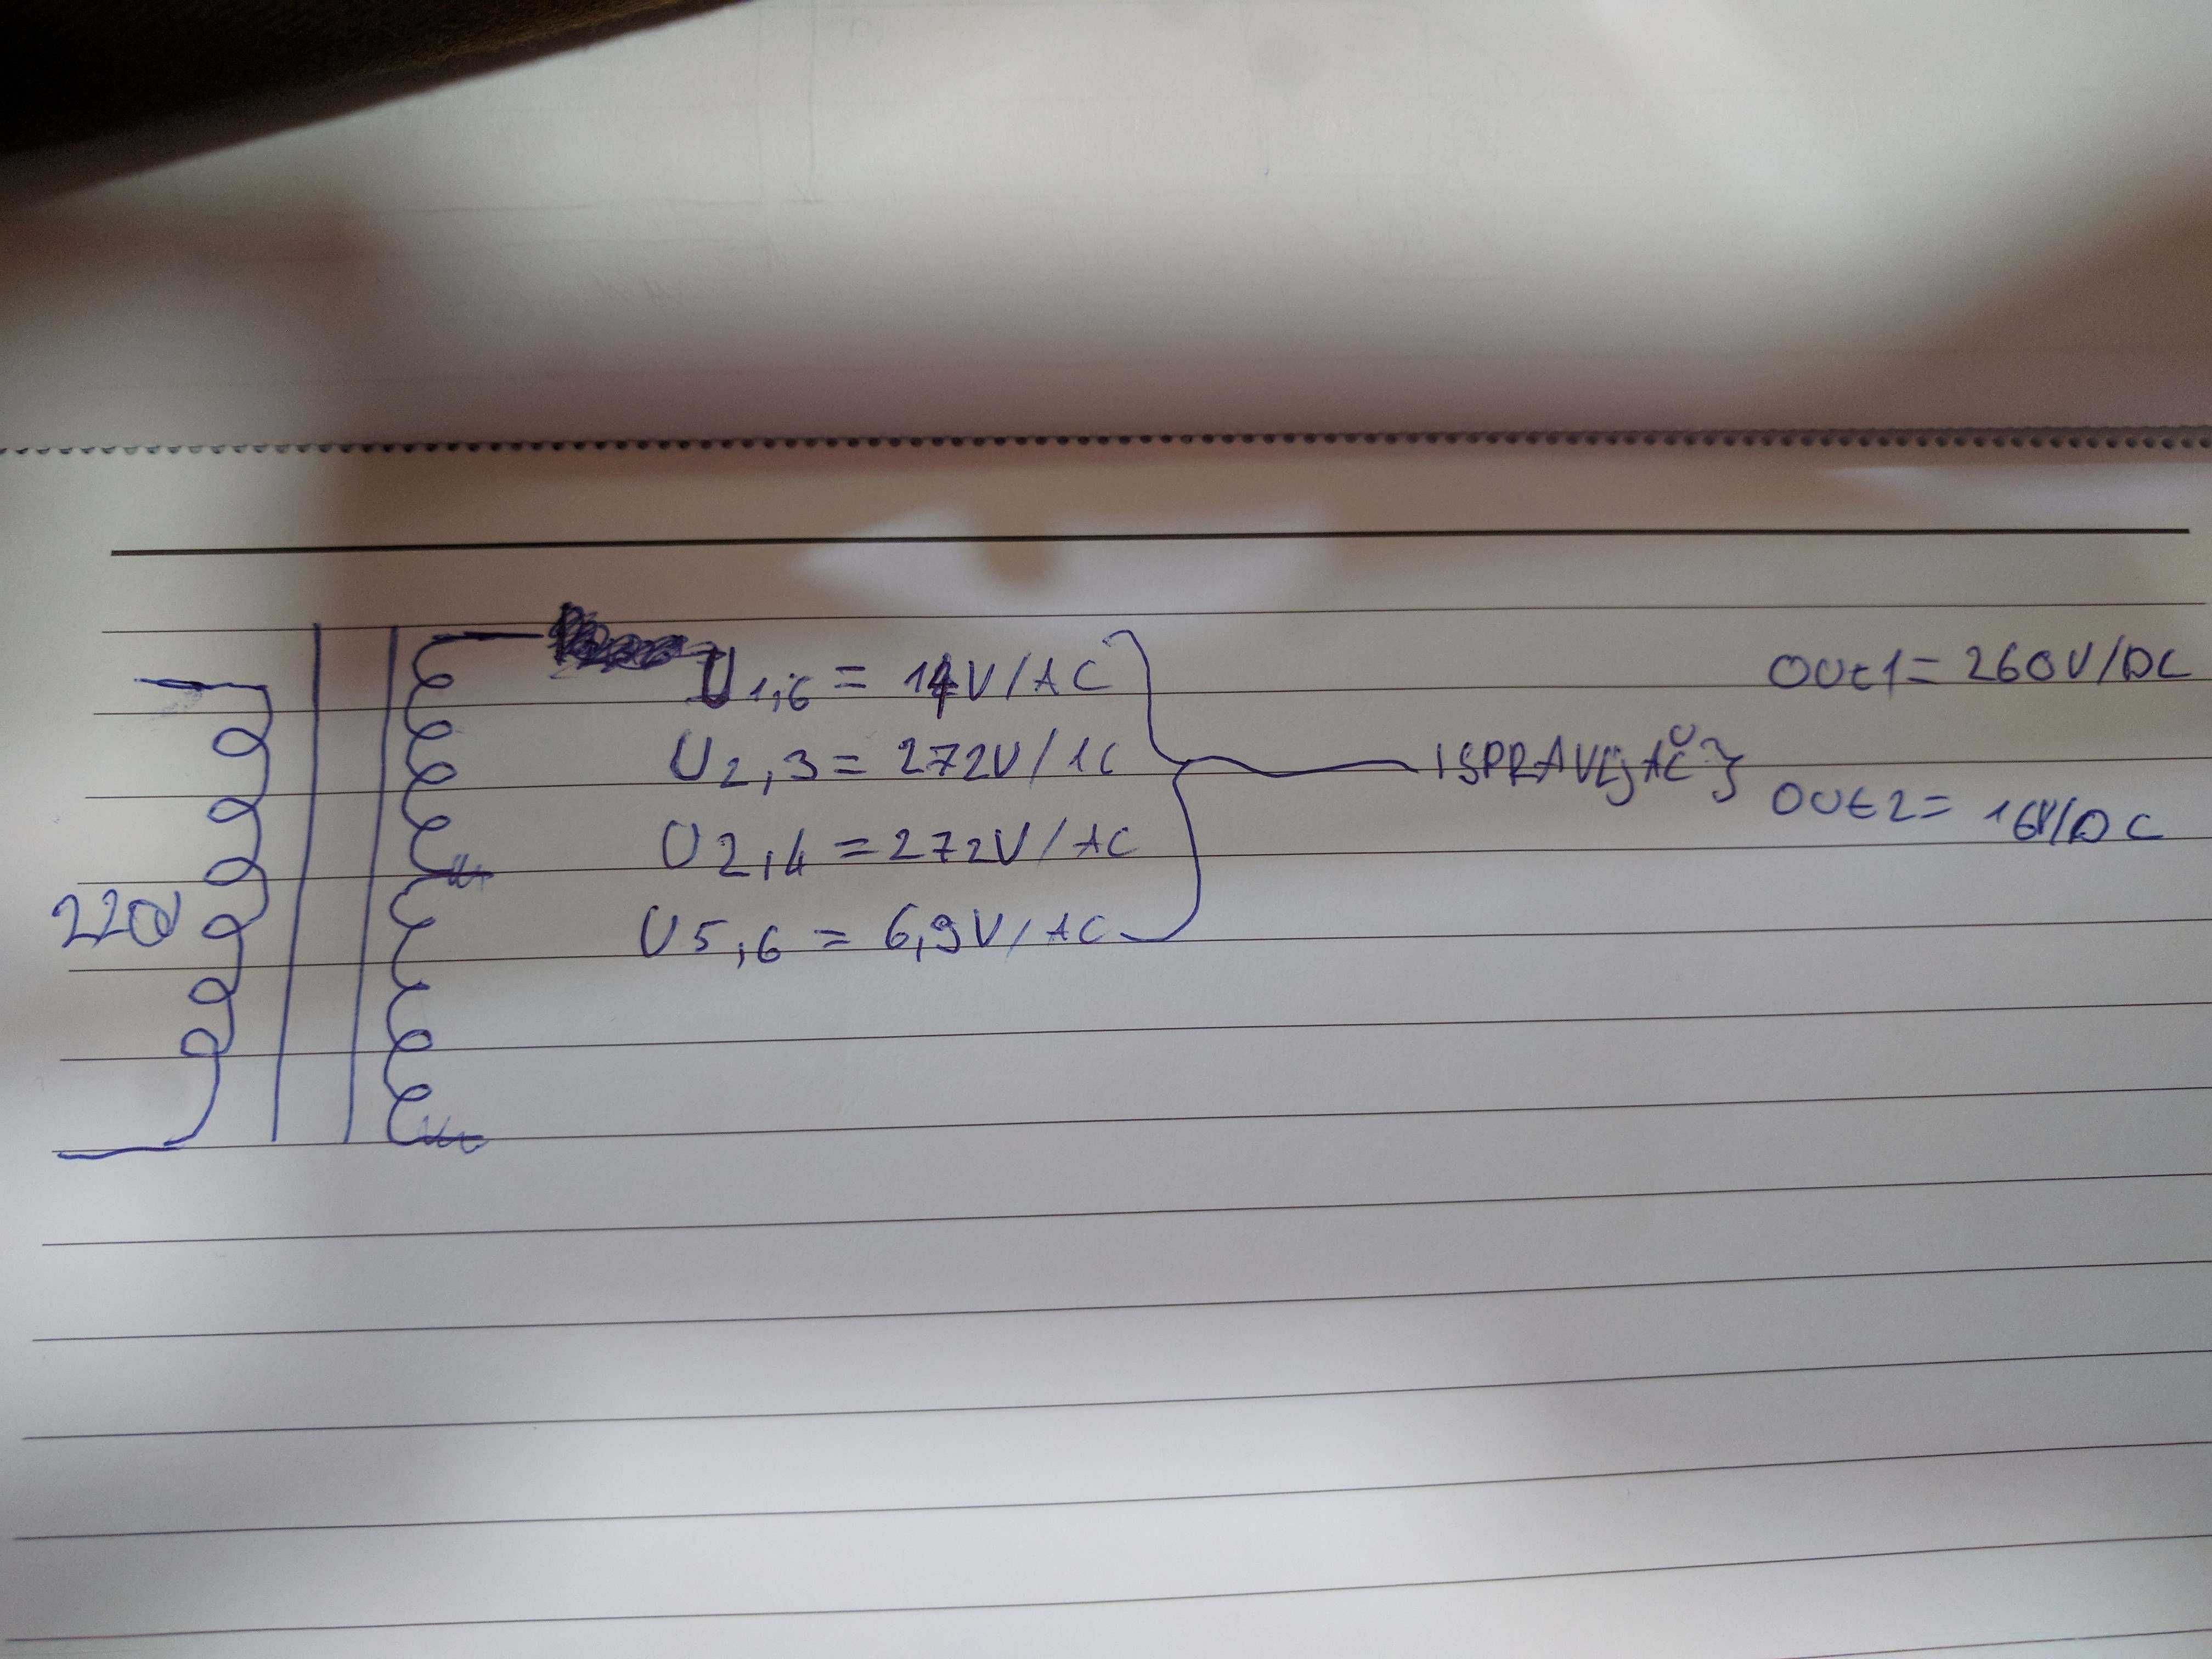 U1,6 = 14V/AC
U2,3 = 272V/AC
U2,4 = 272V/AC
U5,6 = 6,9V/AC
220V
ISPRAVLJAČ }
OUt1 = 260V/DC
OUt2 = 16V/DC